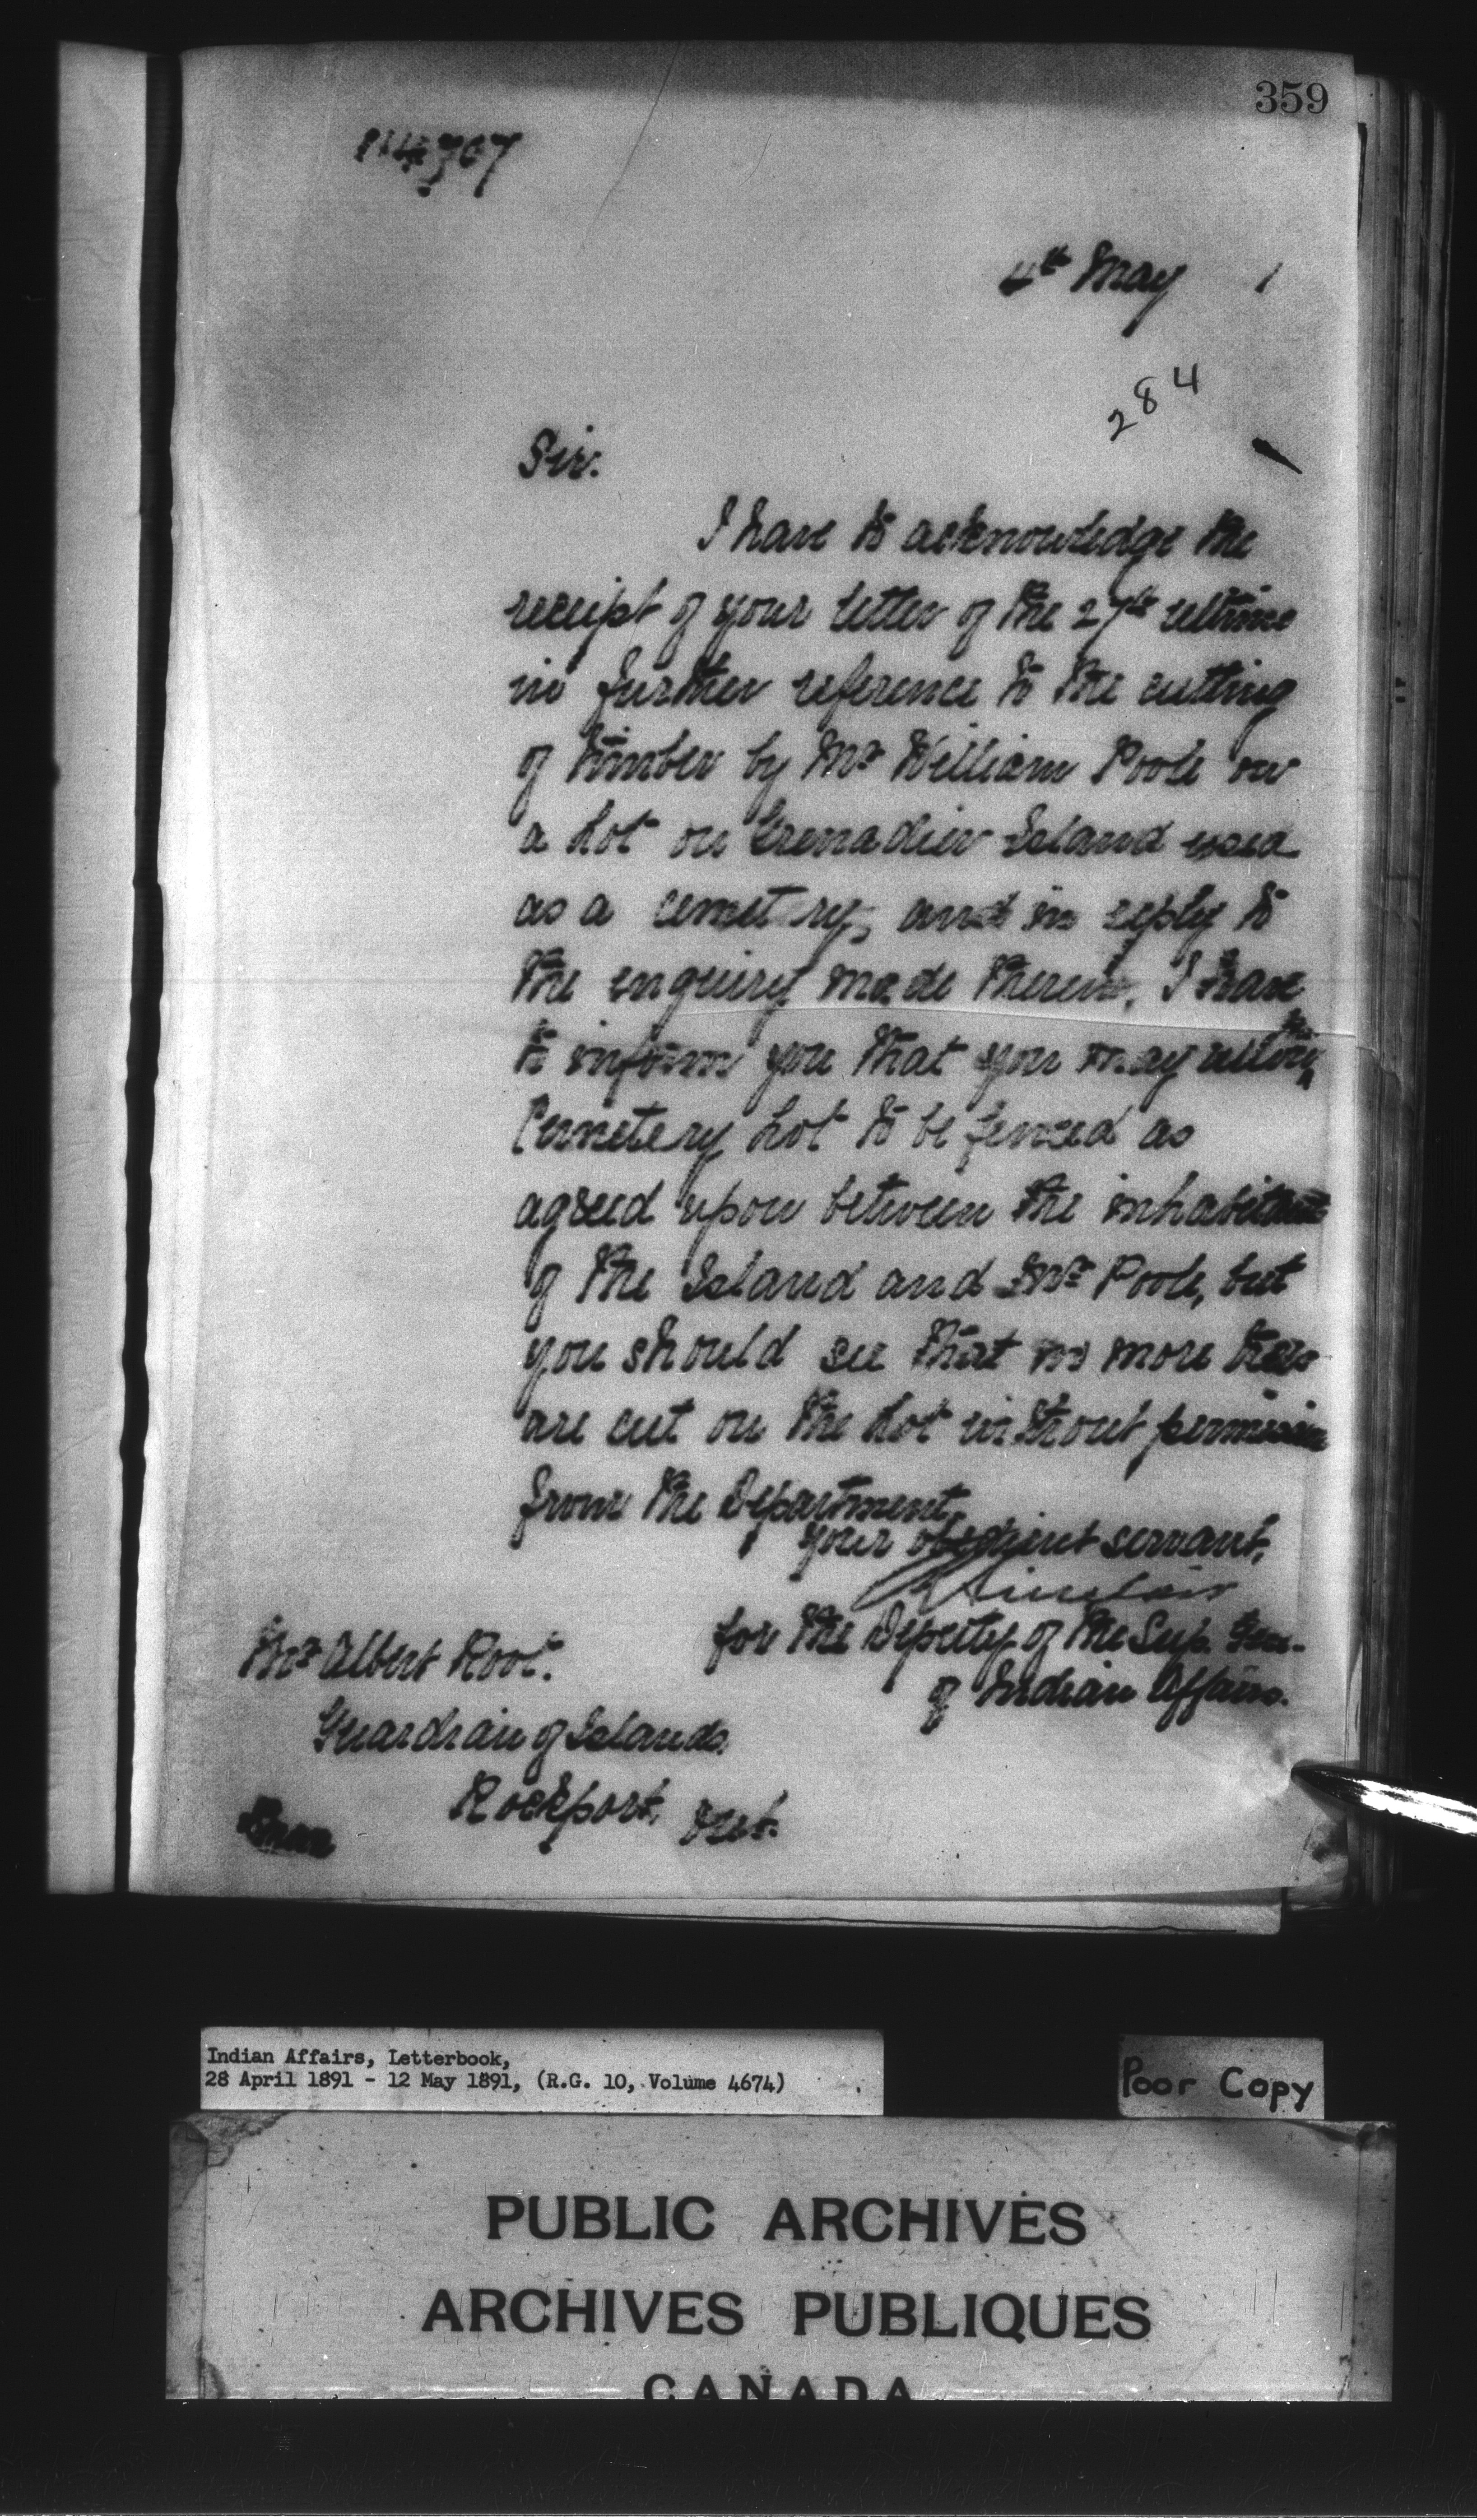 359
4th May 1
284
Sir.
I have to acknowledge the
receipt of your letter of the 27th ultimo
in further reference to the cutting
of timber by Mr William Poole on
a Lot on Grenadier Island used
as a cemetery, and in reply to
the enquiry made therein, I have
to inform you that you may allow the
Cemetery Lot to be fenced as
agreed upon between the inhabitants
of the Island and Mr Poole, but
you should see that no more trees
are cut on the Lot without permission
from the Department.
Your obedient servant,
Sinclair
for the Deputy of the Sup. Gen.
of Indian Affairs.
Mr Albert Root.
Guardian of Islands.
Rockport, Ont.
Indian Affairs, Letterbook,
28 April 1891 - 12 May 1891, (R.G. 10, Volume 4674)
Poor Copy
PUBLIC ARCHIVES
ARCHIVES PUBLIQUES
CANADA